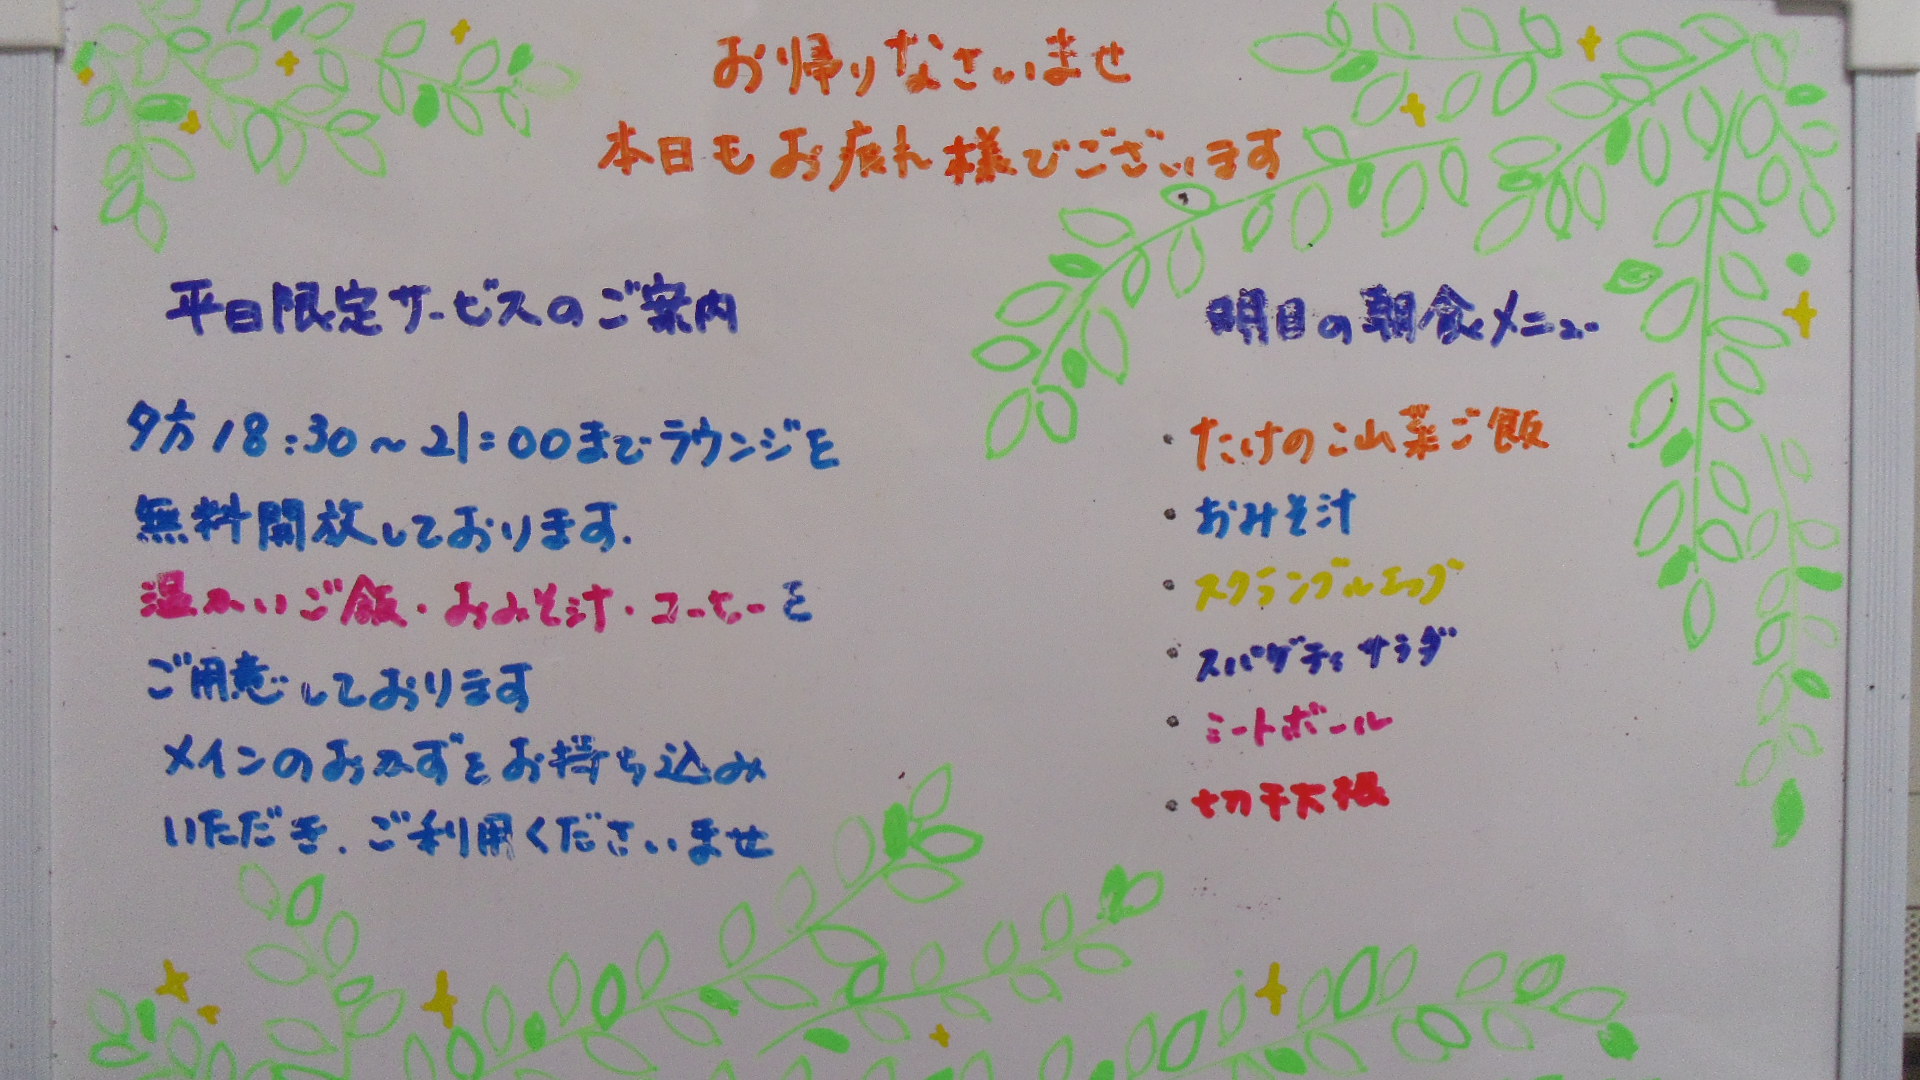 お帰りなさいませ
本日もお疲れ様でございます
平日限定サービスのご案内
夕方18:30～21:00までラウンジを
無料開放しております.
温かいご飯・おみそ汁・コーヒーを
ご用意しております
メインのおかずをお持ち込み
いただき、ご利用くださいませ
明日の朝食メニュー
・たけのこ山菜ご飯
・おみそ汁
・スクランブルエッグ
・スパゲティサラダ
・ミートボール
・切干大根